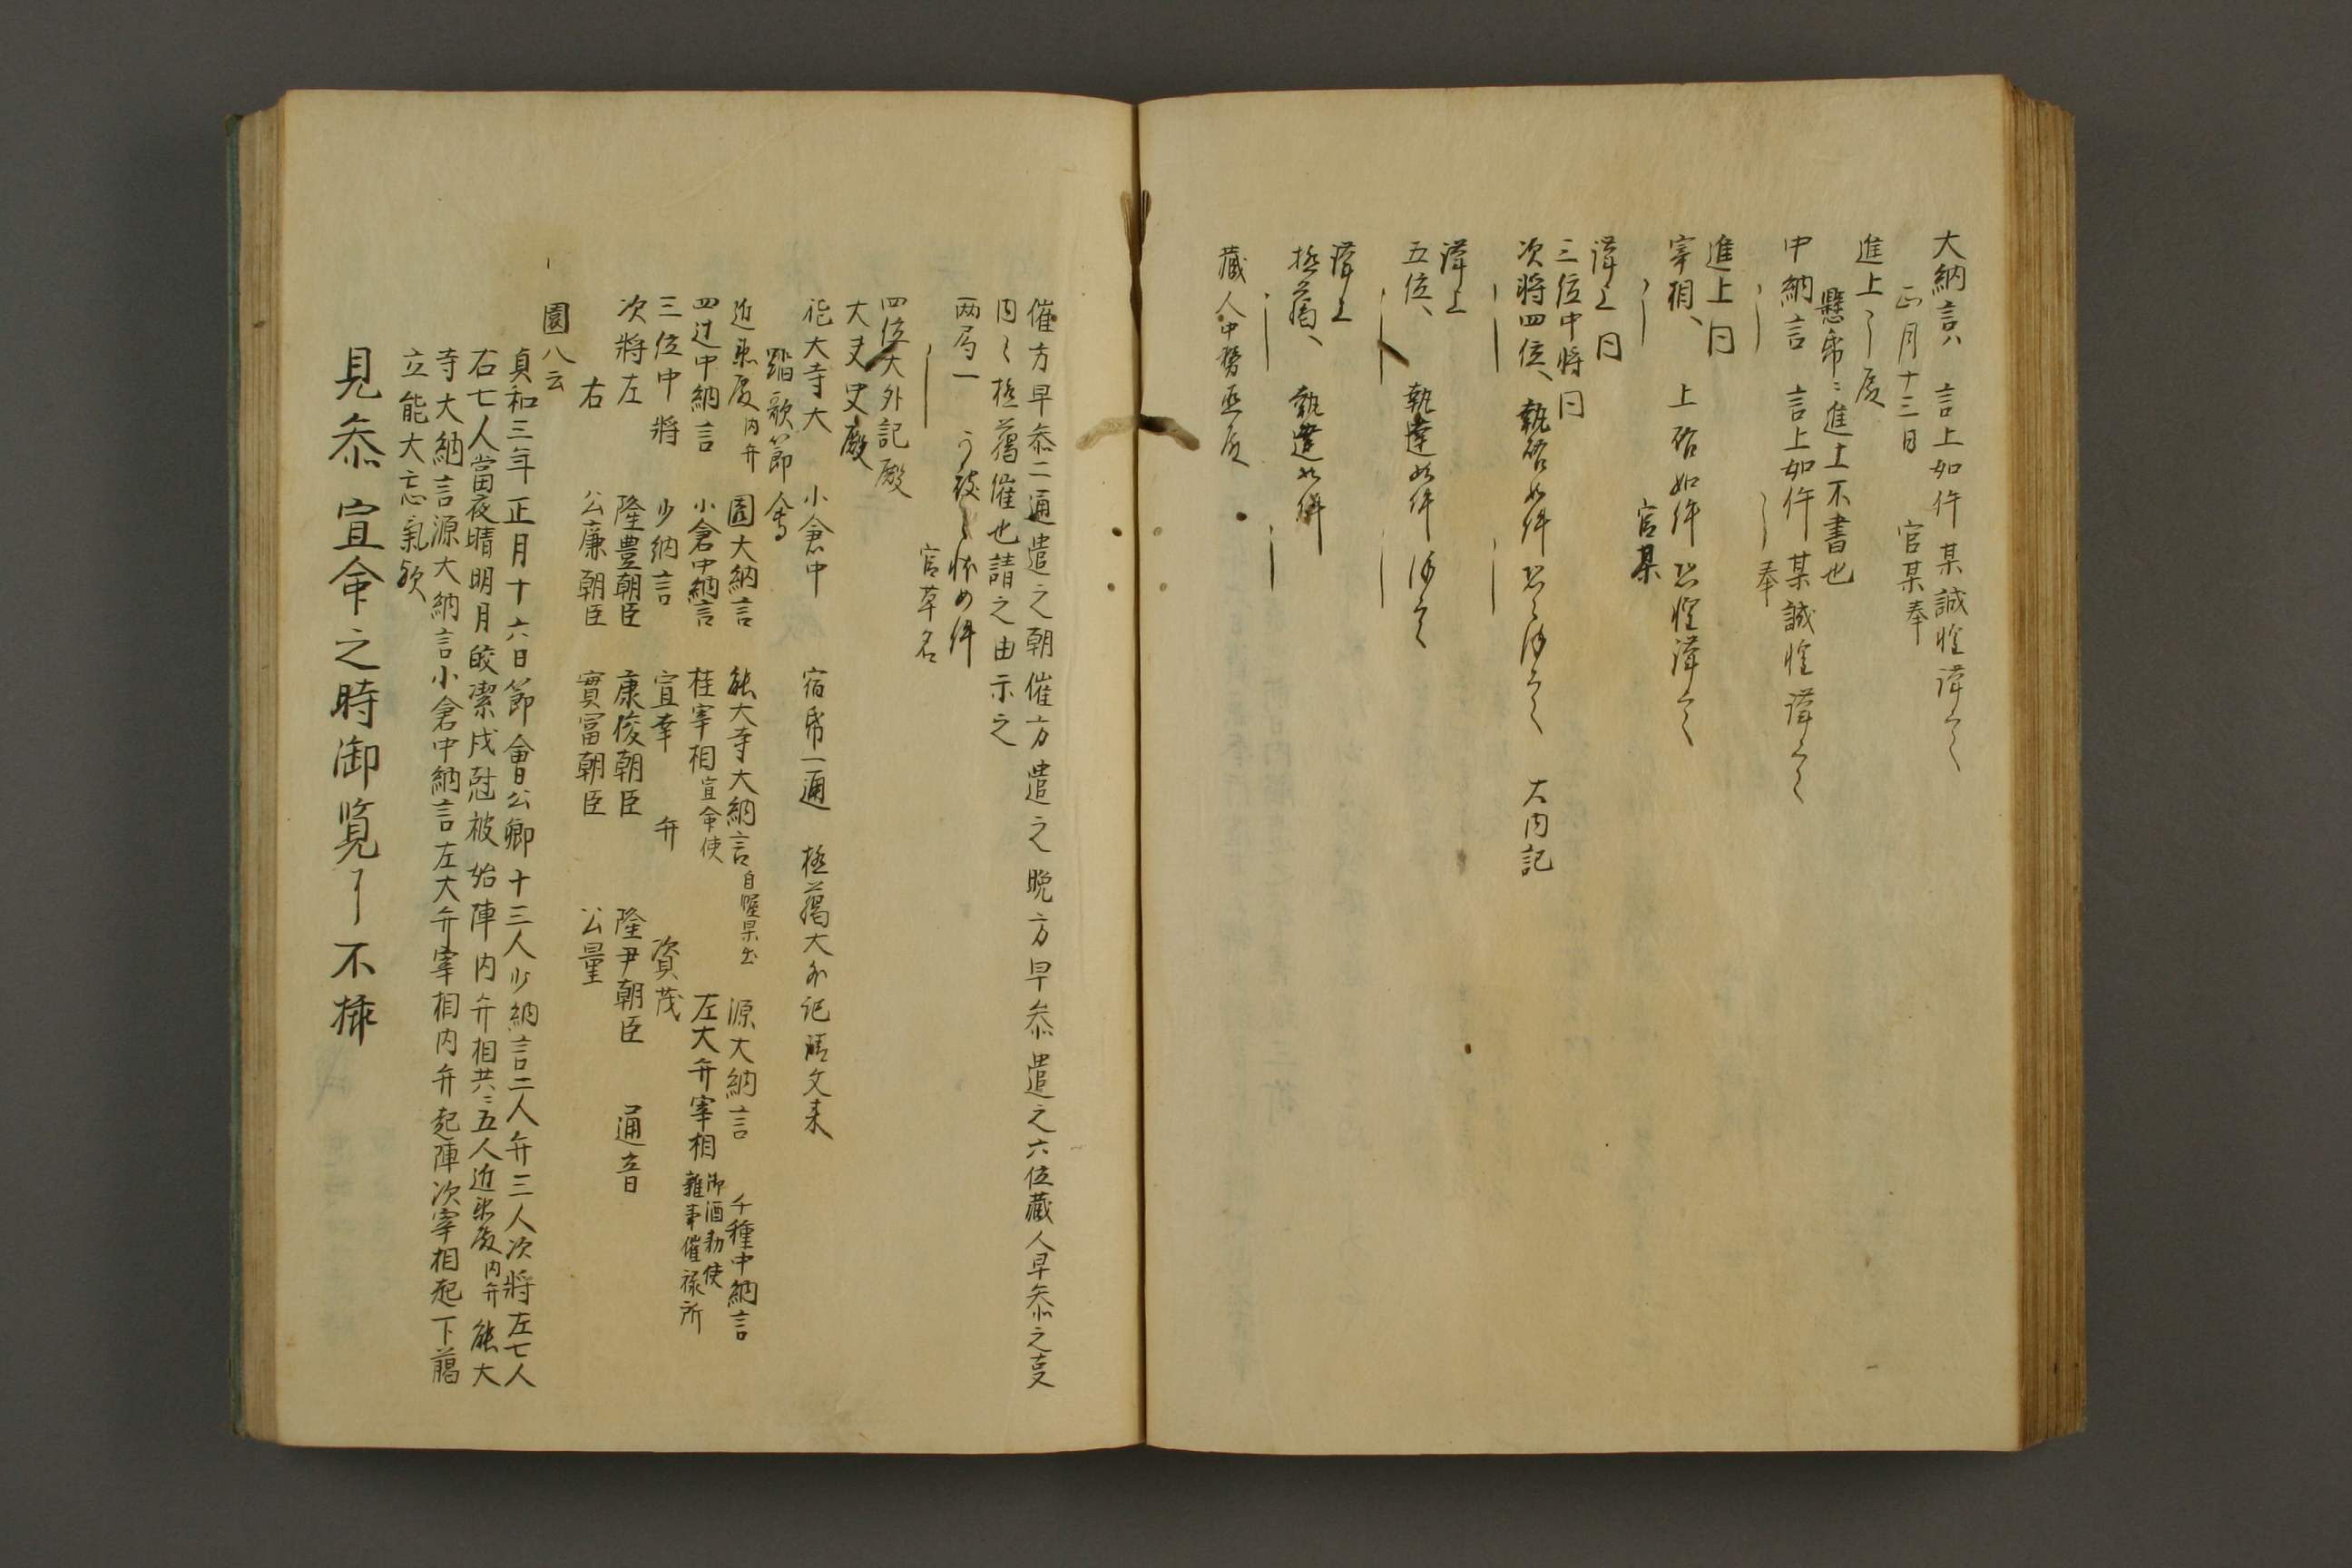 大納言ハ 言上如件 某誠惶謹言
正月十三日 官某奉
進上 殿
懸帋ニ進上不書也
中納言 言上如件 某誠惶謹言
奉
進上 同
宰相 上啓如件 恐惶謹言
官某
謹上 同
三位中将 同
次将四位 執啓如件 恐々 大内記
謹上
五位 執達如件
謹上
極﨟 執達如件
蔵人中務丞殿
催方早参二通遣之朝催方遣之晩方早参遣之六位蔵人早参之㕝
内々極﨟催也請之由示之
両局一 如件
官草名
四位大外記殿
大夫史殿
大寺大 小倉中 宿帋一通 極﨟大外記請文来
踏歌節會
近衛殿内弁 園大納言 能大寺大納言 源大納言 千種中納言
四辻中納言 小倉中納言 桂宰相宣命使 左大弁宰相御酒勅使雑事催禄所
三位中将 少納言 宣幸 弁 資茂
次将左 隆豊朝臣 康俊朝臣 隆尹朝臣 通音
右 公廉朝臣 實冨朝臣 公量
園八云
貞和三年正月十六日節會公卿十三人少納言二人弁三人次将左七人
右七人當夜晴明月皎潔戌尅被始陣内弁相共ニ五人近衛殿内弁能大
寺大納言源大納言小倉中納言左大弁宰相内弁起陣次宰相起下﨟
立能大忘氣歟
見参宣命之時御覧了不挿